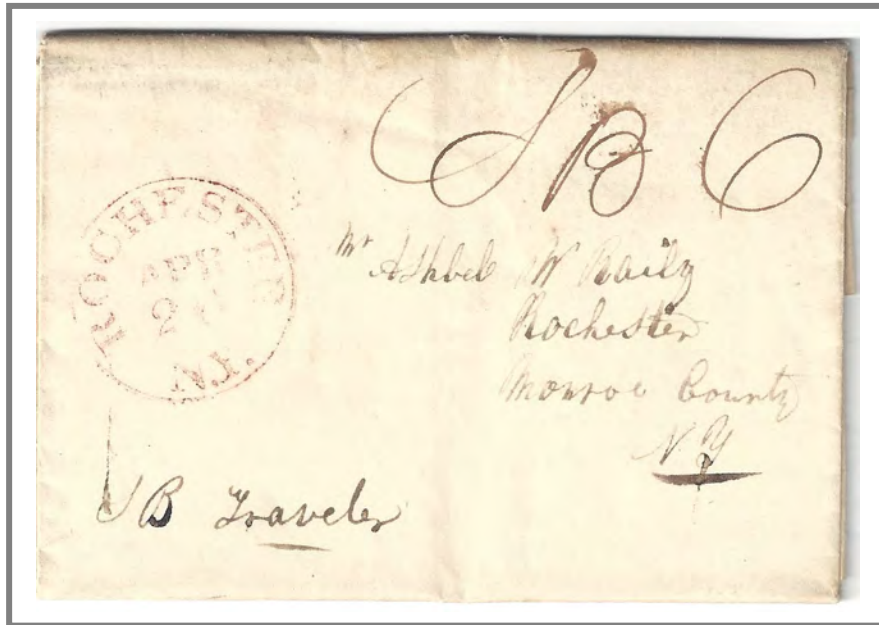 S B 6
ROCHESTER
APR
N.Y.
Mr Ashbel W Raily
Rochester
Monroe County
N Y
S B Traveler